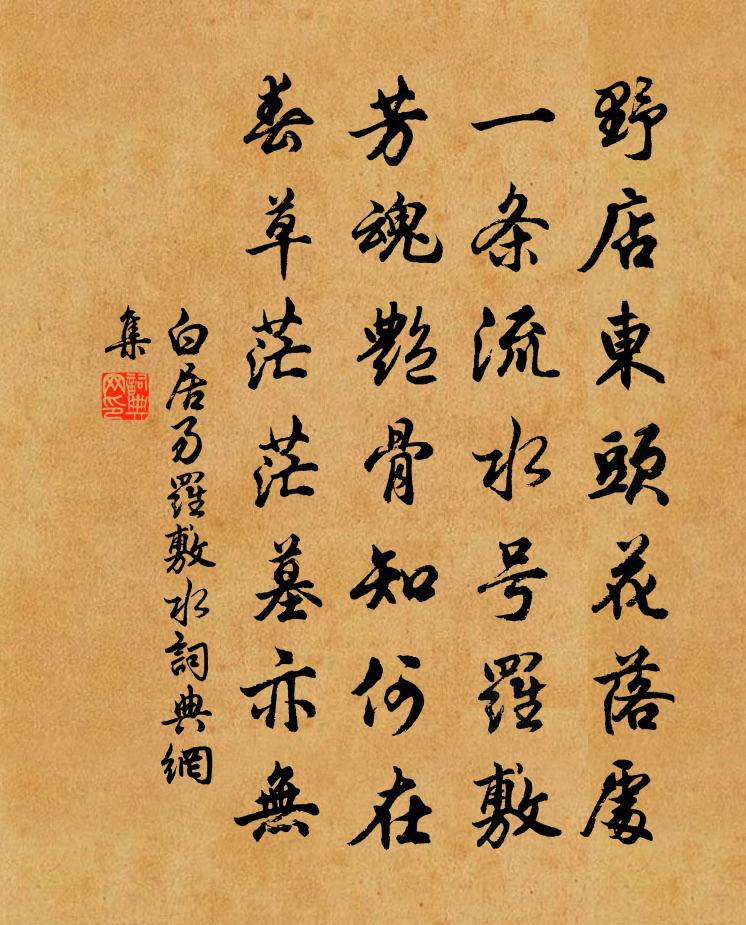 野店東頭花落處
一条流水号羅敷
芳魂艶骨知何在
春草茫茫墓亦無
白居易羅敷水詞典網
集
詞典
网印